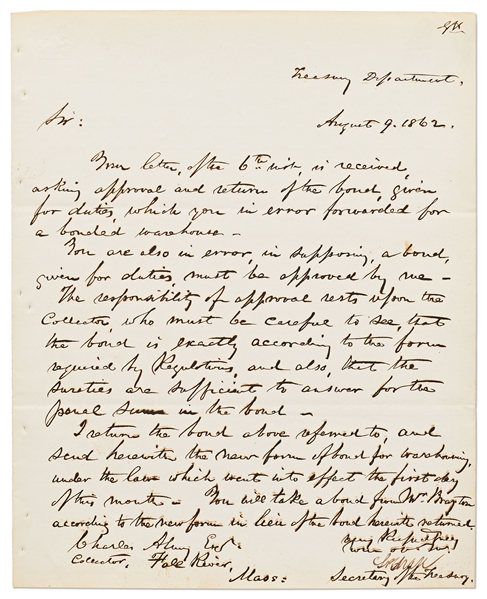 Treasury Department,
August 9. 1862.
Sir:
Your letter, of the 6th inst, is received,
asking approval and return of the bond, given
for duties, which you in error forwarded for
a bonded warehouse –
You are also in error, in supposing, a bond,
given for duties, must be approved by me –
The responsibility of approval rests upon the
Collector, who must be careful to see, that
the bond is exactly according to the form
required by Regulations, and also, that the
sureties are sufficient to answer for the
penal sum in the bond –
I return the bond above referred to, and
send herewith the new form of bond for warehousing,
under the law which went into effect the first day
of this month – You will take a bond from Mr. Brayton
according to the new form in lieu of the bond herewith returned.
Very Respectfully
Charles Almy Esqr.
Your obt
Collector, Fall River,
Mass: Secretary of the Treasury.